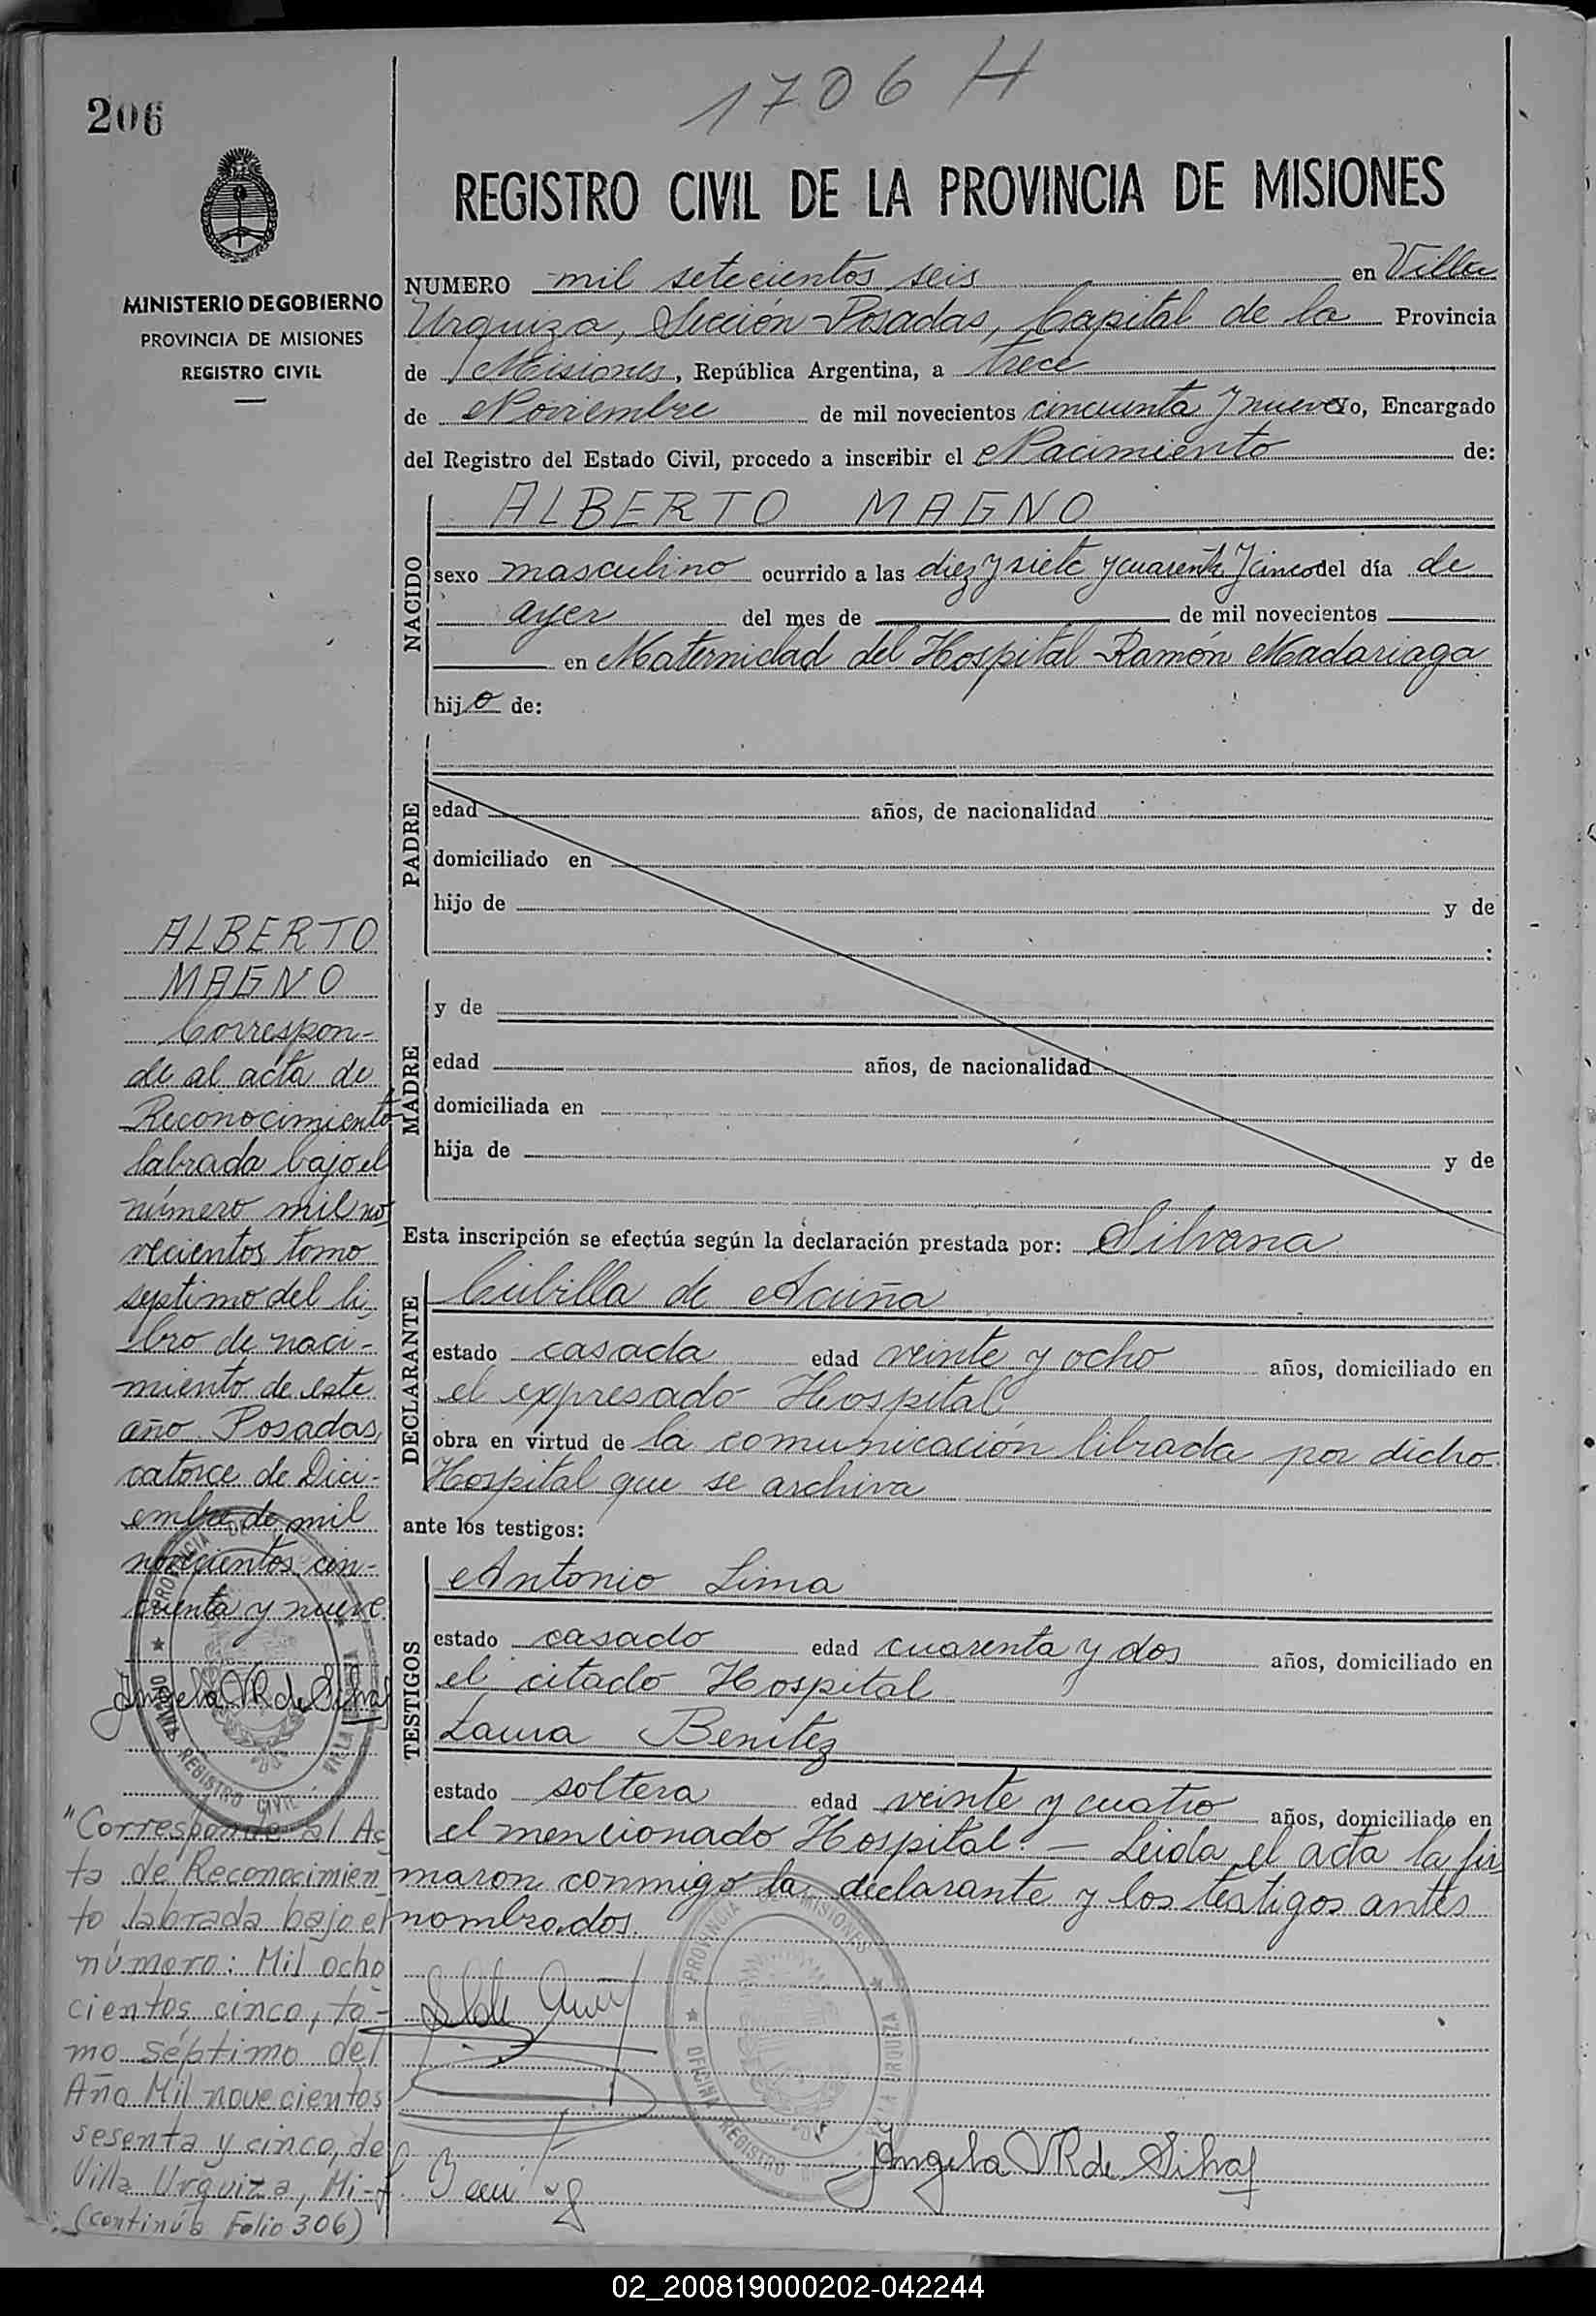 1706 H
206
REGISTRO CIVIL DE LA PROVINCIA DE MISIONES
MINISTERIO DE GOBIERNO
PROVINCIA DE MISIONES
REGISTRO CIVIL
NUMERO mil setecientos seis en Villa
Urquiza, Sección Posadas, Capital de la Provincia
de Misiones, República Argentina, a trece
de Noviembre de mil novecientos cincuenta y nueve yo, Encargado
del Registro del Estado Civil, procedo a inscribir el Nacimiento de:
NACIDO
ALBERTO MAGNO
sexo masculino ocurrido a las diez y siete y cuarenta y cinco del día de
ayer del mes de de mil novecientos
en Maternidad del Hospital Ramón Madariaga
hijo de:
PADRE
edad años, de nacionalidad
domiciliado en
hijo de y de
:
MADRE
y de
edad años, de nacionalidad
domiciliada en
hija de y de
Esta inscripción se efectúa según la declaración prestada por: Silvana
DECLARANTE
Cubilla de Acuña
estado casada edad veinte y ocho años, domiciliado en
el expresado Hospital
obra en virtud de la comunicación librada por dicho
Hospital que se archiva
ante los testigos:
TESTIGOS
Antonio Lima
estado casado edad cuarenta y dos años, domiciliado en
el citado Hospital
Laura Benitez
estado soltera edad veinte y cuatro años, domiciliado en
el mencionado Hospital. — Leida el acta la fir
maron conmigo la declarante y los testigos antes
nombrados.
PROVINCIA MISIONES
OFICINA REGISTRO VILLA URQUIZA
Angela VR de Silva
ALBERTO
MAGNO
Correspon-
de al acta de
Reconocimiento
labrada bajo el
número mil no
vecientos tomo
septimo del li
bro de naci-
miento de este
año. Posadas,
catorce de Dici-
embre de mil
novecientos cin-
cuenta y nueve.
Angela VR de Silva
PROVINCIA DE
OFICINA REGISTRO CIVIL VILLA
"Corresponde al Ac
ta de Reconocimien
to labrada bajo el
número: Mil ocho
cientos cinco, to-
mo séptimo del
Año Mil novecientos
sesenta y cinco, de
Villa Urquiza, Mi-
(continúa Folio 306)
02_200819000202-042244